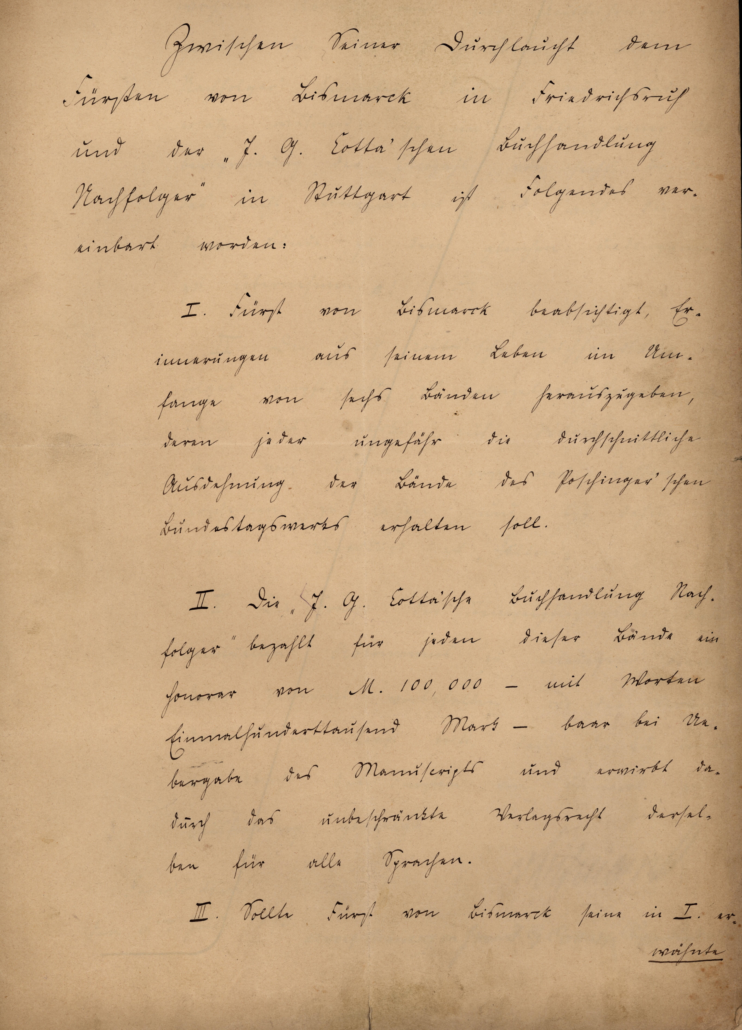 Zwischen Seiner Durchlaucht dem
Fürsten von Bismarck in Friedrichsruh
und der „J. G. Cotta'schen Buchhandlung
Nachfolger" in Stuttgart ist Folgendes ver-
einbart worden:
I. Fürst von Bismarck beabsichtigt, Er-
innerungen aus seinem Leben im Um-
fange von sechs Bänden herauszugeben,
deren jeder ungefähr die durchschnittliche
Ausdehnung der Bände des Poschinger'schen
Bundestagswerks erhalten soll.
II. Die „J. G. Cotta'sche Buchhandlung Nach-
folger" bezahlt für jeden dieser Bände ein
Honorar von M. 100,000 – mit Worten
Einmalhunderttausend Mark – baar bei Ue-
bergabe des Manuscripts und erwirbt da-
durch das unbeschränkte Verlagsrecht dersel-
ben für alle Sprachen.
III. Sollte Fürst von Bismarck seine in I. er-
wähnte